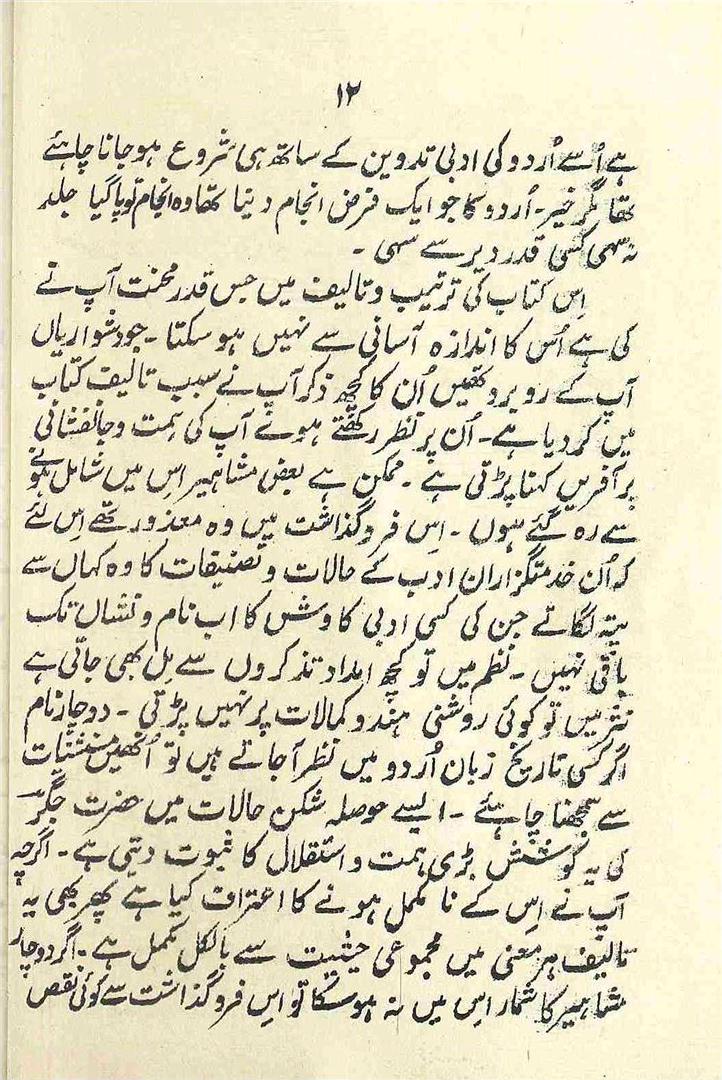 ۱۲
ہے اُسے اُردو کی ادبی تدوین کے ساتھ ہی شروع ہو جانا چاہئے
تھا مگر خیر۔ اُردو کا جو ایک فرض انجام دینا تھا وہ انجام تو پا گیا جلد
نہ سہی کسی قدر دیر سے سہی ۔
اِس کتاب کی ترتیب و تالیف میں جس قدر محنت آپ نے
کی ہے اُس کا اندازہ آسانی سے نہیں ہو سکتا ۔ جو دشواریاں
آپ کے روبرو تھیں اُن کا کچھ ذکر آپ نے سبب تالیف کتاب
میں کر دیا ہے ۔ اُن پر نظر رکھتے ہوئے آپ کی ہمت و جانفشانی
پر آفریں کہنا پڑتی ہے ۔ ممکن ہے بعض مشاہیر اس میں شامل ہونے
سے رہ گئے ہوں ۔ اِس فروگذاشت میں وہ معذور تھے اِس لئے
کہ اُن خدمتگزاران ادب کے حالات و تصنیفات کا وہ کہاں سے
پتہ لگاتے جن کی کسی ادبی کاوش کا اب نام و نشاں تک
باقی نہیں ۔ نظم میں تو کچھ امداد تذکروں سے مل بھی جاتی ہے
نثر میں تو کوئی روشنی ہندو کمالات پر نہیں پڑتی ۔ دو چار نام
اگر کسی تاریخ زبان اُردو میں نظر آجاتے ہیں تو اُنھیں مستثنیات
سے سمجھنا چاہئے ۔ ایسے حوصلہ شکن حالات میں حضرت جگرؔ
کی یہ کوشش بڑی ہمت و استقلال کا ثبوت دیتی ہے ۔ اگرچہ
آپ نے اِس کے نامکمل ہونے کا اعتراف کیا ہے پھر بھی یہ
تالیف ہر معنی میں مجموعی حیثیت سے بالکل مکمل ہے ۔ اگر دو چار
مشاہیر کا شمار اس میں نہ ہو سکا تو اِس فروگذاشت سے کوئی نقص